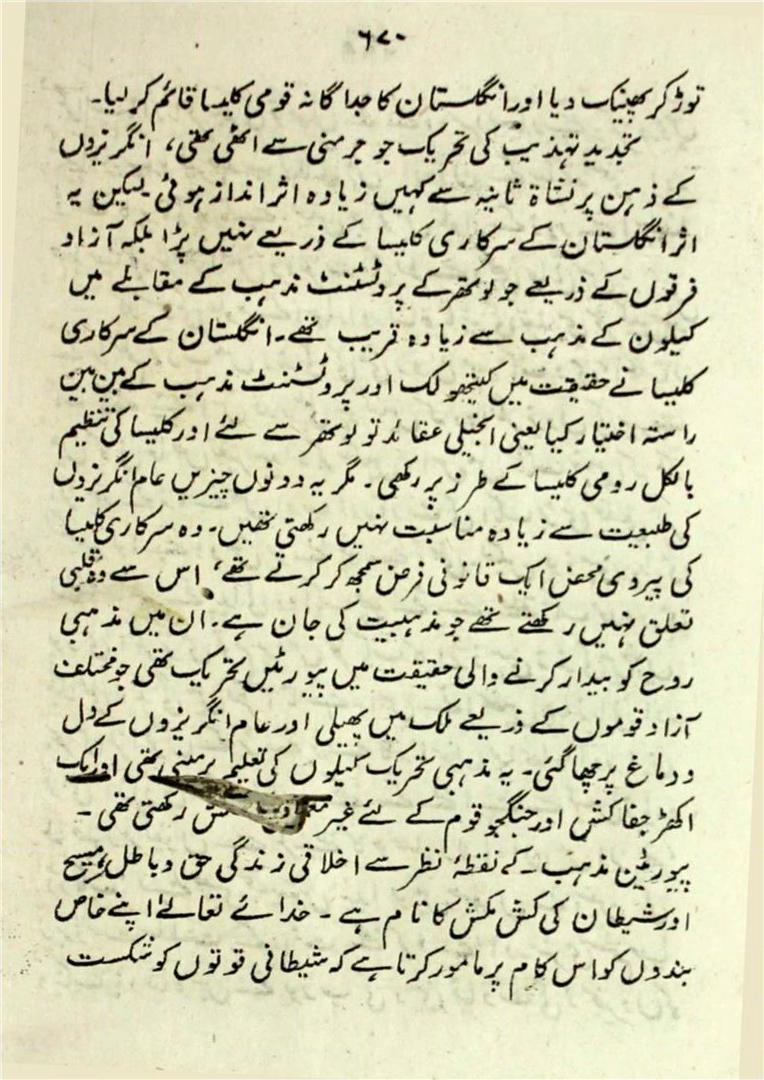 ۶۷۰
توڑ کر پھینک دیا اور انگلستان کا جداگانہ قومی کلیسا قائم کر لیا۔
تجدید تہذیب کی تحریک جو جرمنی سے اٹھی تھی، انگریزوں
کے ذہن پر نشاۃ ثانیہ سے کہیں زیادہ اثر انداز ہوئی لیکن یہ
اثر انگلستان کے سرکاری کلیسا کے ذریعے نہیں پڑا بلکہ آزاد
فرقوں کے ذریعے جو لوتھر کے پروٹسٹنٹ مذہب کے مقابلے میں
کیلون کے مذہب سے زیادہ قریب تھے۔ انگلستان کے سرکاری
کلیسا نے حقیقت میں کیتھولک اور پروٹسٹنٹ مذہب کے بین بین
راستہ اختیار کیا یعنی انجیلی عقائد تو لوتھر سے لئے اور کلیسا کی تنظیم
بالکل رومی کلیسا کے طرز پر رکھی۔ مگر یہ دونوں چیزیں عام انگریزوں
کی طبیعت سے زیادہ مناسبت نہیں رکھتی تھیں۔ وہ سرکاری کلیسا
کی پیروی محض ایک قانونی فرض سمجھ کر کرتے تھے، اس سے وہ قلبی
تعلق نہیں رکھتے تھے جو مذہبیت کی جان ہے۔ ان میں مذہبی
روح کو بیدار کرنے والی حقیقت میں پیورٹین تحریک تھی جو مختلف
آزاد قوموں کے ذریعے ملک میں پھیلی اور عام انگریزوں کے دل
و دماغ پر چھا گئی۔ یہ مذہبی تحریک کیلون کی تعلیم پر مبنی تھی اور ایک
اکھڑ جفاکش اور جنگجو قوم کے لئے غیر رکھتی تھی۔
پیورٹین مذہب۔ کے نقطۂ نظر سے اخلاقی زندگی حق و باطل، مسیح
اور شیطان کی کش مکش کا نام ہے۔ خدائے تعالےٰ اپنے خاص
بندوں کو اس کام پر مامور کرتا ہے کہ شیطانی قوتوں کو شکست